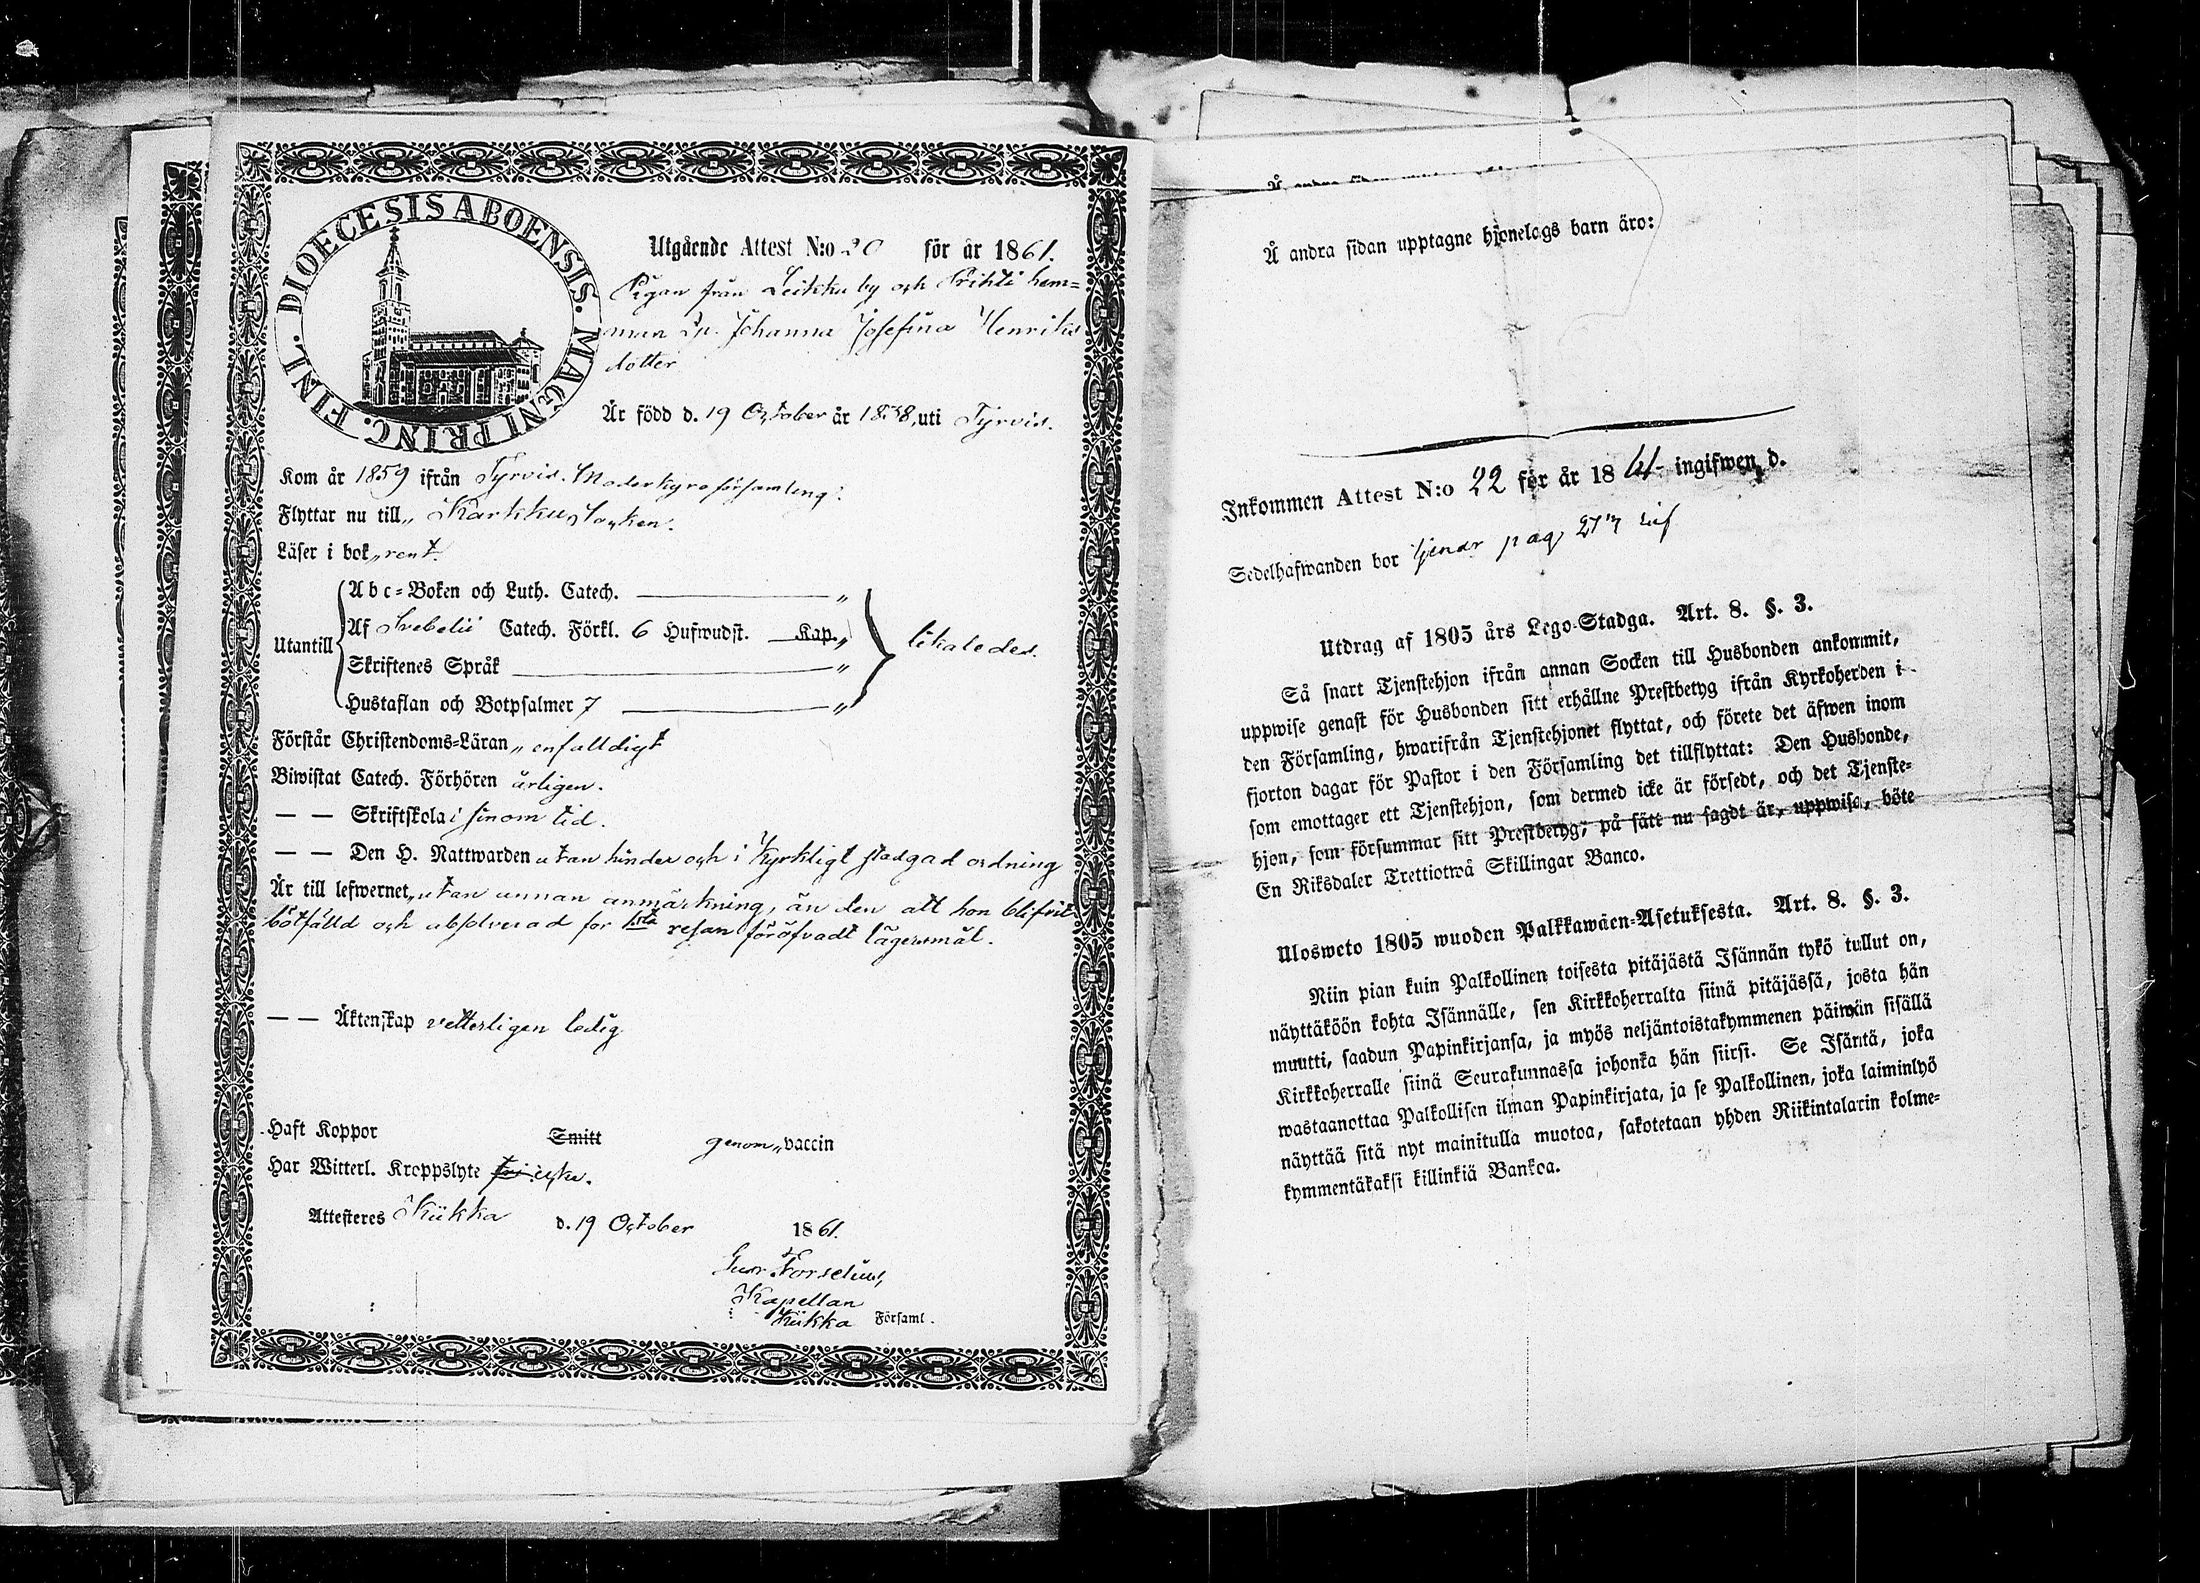 DIOECESIS ABOENSIS. MAGNI PRINC. FINL.
Utgående Attest N:o 20 för år 1861.
Pigan från Leikku by och Prihti hem=
man Johanna Josefina Henriks
dotter
Är född d. 19 October år 1838, uti Tyrvis.
Kom år 1859 ifrån Tyrvis Moderkyroförsamling.
Flyttar nu till „ Karkku Socken.
Läser i bok „ rent.
Utantill
Abc=Boken och Luth. Catech. „
Af Svebelii Catech. Förkl. 6 Hufwudst. Kap. „
Skriftenes Språk „
Hustaflan och Botpsalmer 7 „
likaledes.
Förstår Christendoms=Läran „ enfalldigt
Biwistat Catech. Förhören årligen.
— — Skriftskola i sinom tid.
— — Den H. Nattwarden utan hinder och i Kyrkligt stadgad ordning
Är till lefwernet „ utan annan anmärkning, än den att hon blifvit
bötfälld och absolverad for 1sta resan föröfvadt lägersmål.
— — Äktenskap vetterligen ledig
Haft Koppor Smitt genom „ vaccin
Har Witterl. Kroppslyte icke.
Attesteres Kiikka d. 19 October 1861.
Gust. Forselius,
Kapellan
Kiikka Församl.
Å andra sidan upptagne hjonelags barn äro:
Inkommen Attest N:o 22 för år 1861 ingifwen d.
Sedelhafwanden bor tjenar pag
Utdrag af 1805 års Lego-Stadga. Art. 8. §. 3.
Så snart Tjenstehjon ifrån annan Socken till Husbonden ankommit,
uppwise genast för Husbonden sitt erhållne Prestbetyg ifrån Kyrkoherden i
den Församling, hwarifrån Tjenstehjonet flyttat, och förete det äfwen inom
fjorton dagar för Pastor i den Församling det tillflyttat: Den Husbonde,
som emottager ett Tjenstehjon, som dermed icke är försedt, och det Tjenste=
hjon, som försummar sitt Prestbetyg, på sätt nu sagdt är, uppwisa, böte
En Riksdaler Trettiotwå Skillingar Banco.
Ulosweto 1805 wuoden Palkkawäen=Asetuksesta. Art. 8. §. 3.
Niin pian kuin Palkollinen toisesta pitäjästä Isännän tykö tullut on,
näyttäköön kohta Isännälle, sen Kirkkoherralta siinä pitäjässä, josta hän
muutti, saadun Papinkirjansa, ja myös neljäntoistakymmenen päiwän sisällä
Kirkkoherralle siinä Seurakunnassa johonka hän siirsi. Se Isäntä, joka
wastaanottaa Palkollisen ilman Papinkirjata, ja se Palkollinen, joka laiminlyö
näyttää sitä nyt mainitulla muotoa, sakotetaan yhden Riikintalarin kolme=
kymmentäkaksi killinkiä Bankoa.